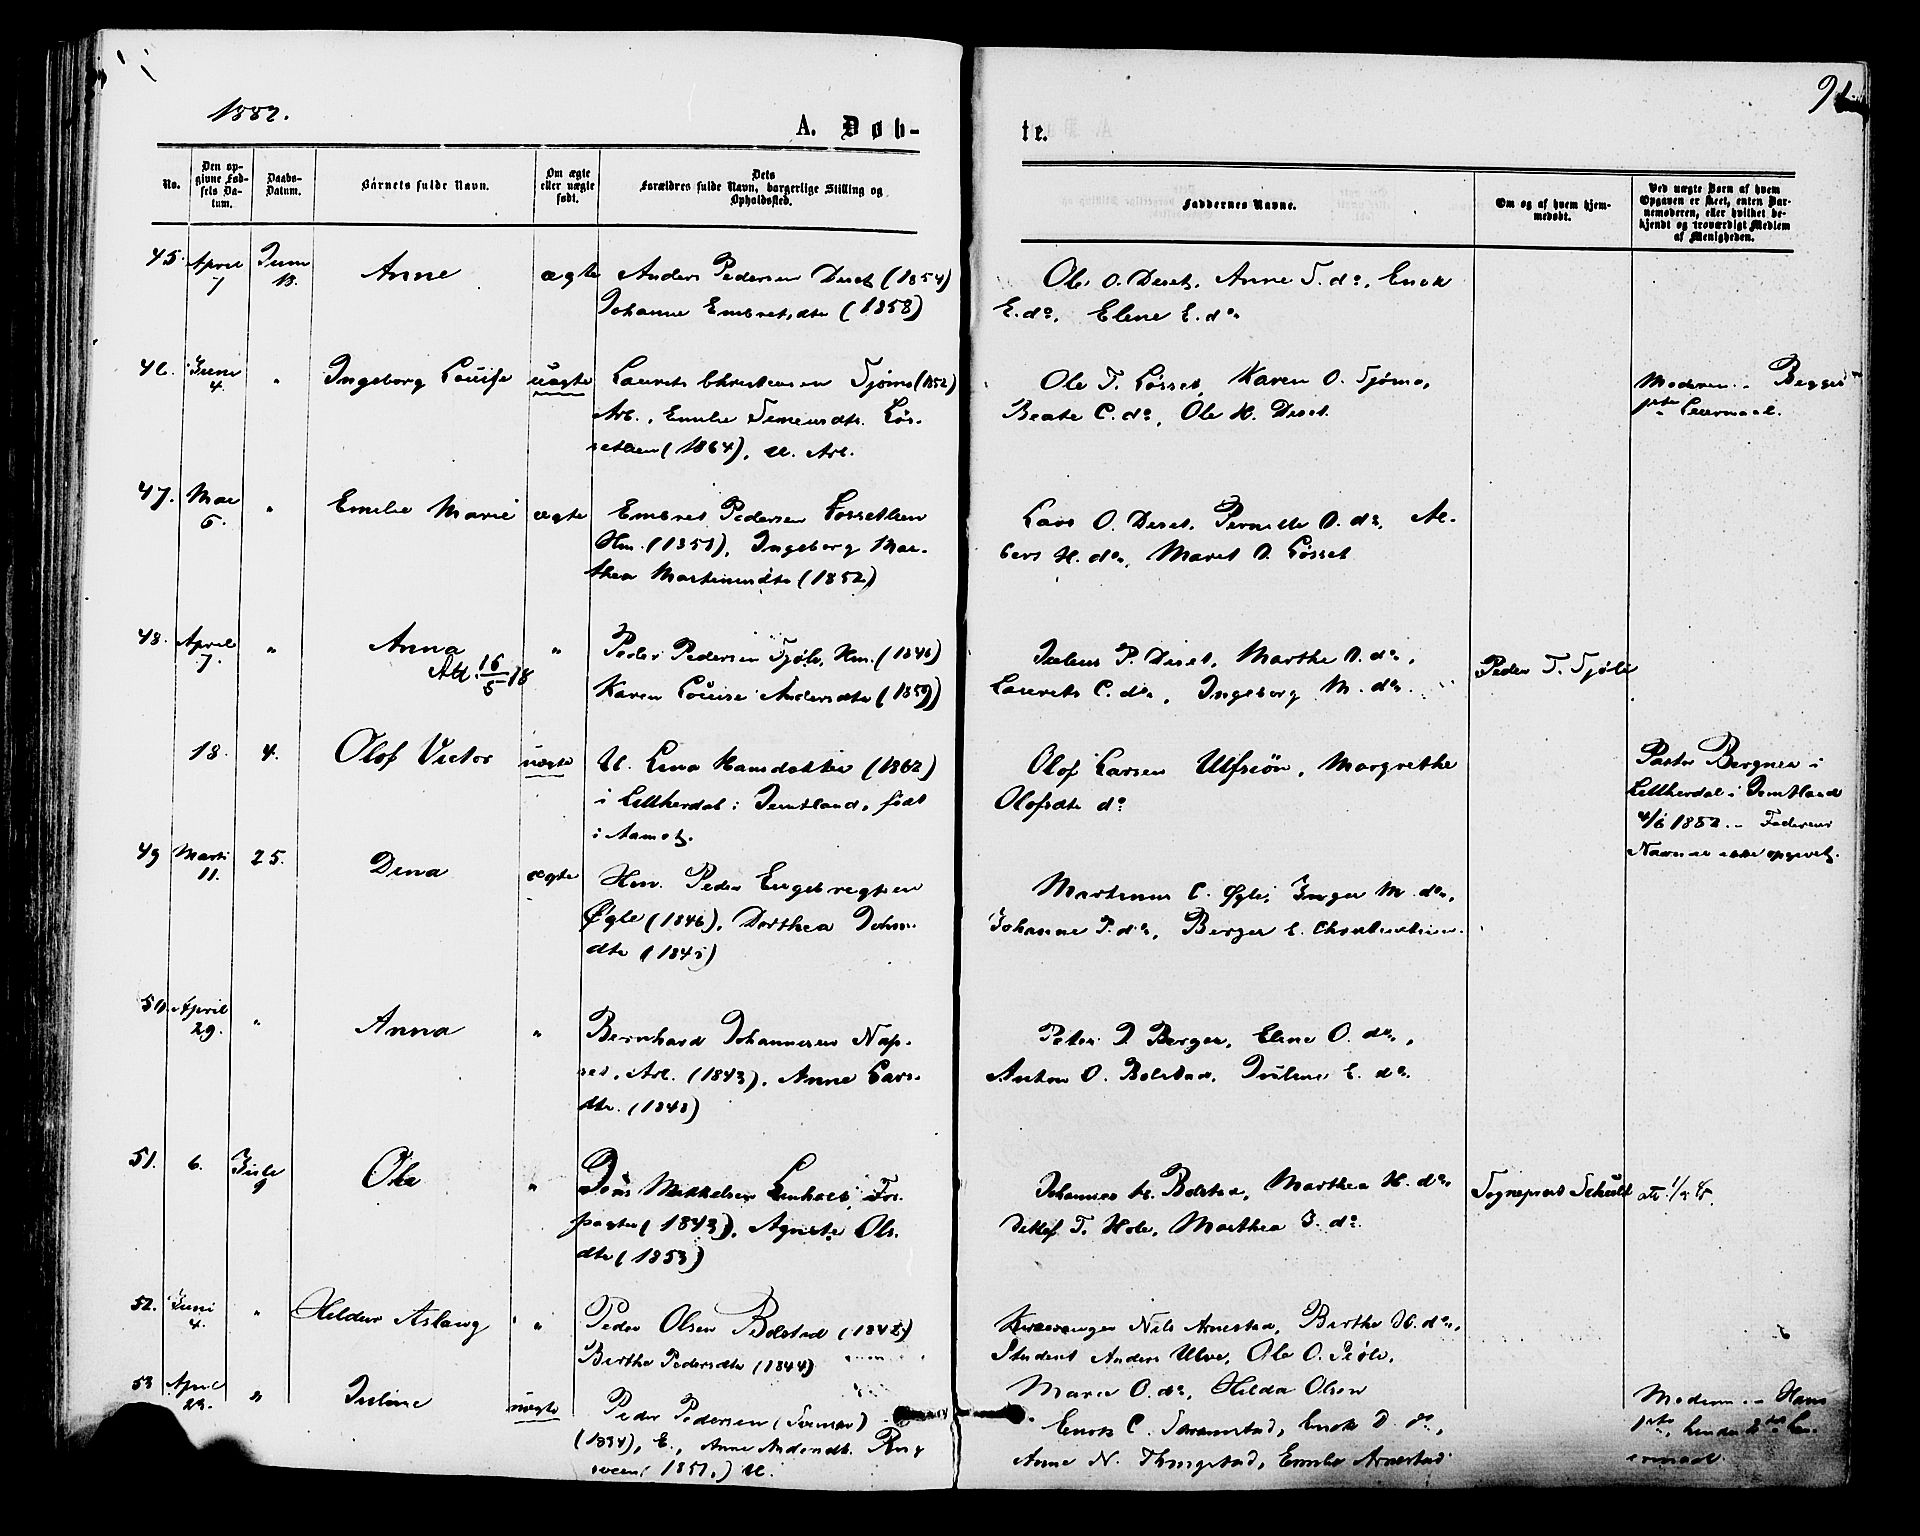 1882.
A. Døb-
te.
No.
Den op-
givne Fød-
sels Da-
tum.
Daabs-
Datum.
Barnets fulde Navn.
Om ægte
eller uægte
født.
Dets
Forældres fulde Navn, borgerlige Stilling og
Opholdssted.
Faddernes Navne.
Om og af hvem hjem-
medøbt.
Ved uægte Børn af hvem
Opgaven er skeet, enten Bar-
nemoderen, eller hvilket be-
kjendt og troværdigt Medlem
af Menigheden.
45. April 7 Juni 18. Anne ægte Anders Pedersen Deset (1854)
Johanne Embretsdtr (1858)
Ole O. Deset, Anne T. do,
E. do, Elene E. do
46. Juni 4. " Ingeborg Louise uægte Laurits Christensen Sjømo (1852)
Arb., Emilie Simensdtr. Løs-
setlien (1864), U. Arb.
Ole T. Løsset, Karen O. Sjømo,
Beate C. do, Ole H. Deset.
Moderen. Begges
1ste Leiermaal.
47. Mai 5. " Emilie Marie ægte Embret Pedersen Løssetlien
Hm. (1851), Ingeborg Mar-
thea Martinusdtr (1852)
Lars O. Deset, Pernille O. do, Al-
bert H. do, Maret O. Løsset
48. April 7. " Anna " Peder Pedersen Sjøli, Hm. (1846)
Ald. 16/5 18
Karen Louise Andersdtr (1859)
Julius P. Deset, Marthe O. do,
Laurits C. do, Ingeborg M. do
Peder T. Sjøli
18. 4. Olof Victor uægte U. Lena Hansdatter (1862)
i Lillherdal i Jemtland, født
i Aamot.
Olof Larsen Ulfsiön, Margrethe
Olofsdtr do
Pastor Bergner i
Lillherdal i Jemtland
4/6 1882. Faderens
Navn er ikke opgivet.
49 Marts 11. 25. Dina ægte Hm. Peder Engebregtsen
Øgle (1846), Dorthea Johns-
dtr (1845)
Martinus C. Øgle, Inger M. do,
Johanne P. do, Berger E. Christiansen.
50. April 29. " Anna " Bernhard Johannesen Nap-
set, Arb. (1843), Anne Lars-
dtr. (1848)
Peter J Berger, Eline O. do,
Anton O. Bolstad, Juline E. do
51. 6. Juli 9 Ole " Jens Mikkelsen For-
pagter (1843), Agnete Ols-
dtr (1853)
Johannes H. Bolstad, Marthea H. do,
Detlef T. Hole, Marthea J. do
Sogneprest Schult
52. Juni 4. " Hildur Aslaug " Peder Olsen Bolstad (1842)
Birthe Pedersdtr (1844)
Kirkesanger Nils Arnestad, Birthe H. do,
Student Anders Ulve, Ole O. Sjøli,
Marie O. do, Hilda Olsen
53 April 23. " Juline uægte Peder Pedersen (Svensk)
(1854), E., Anne Andersdtr. Ryg
sveen (1851) U.
Enock C. Arnestad, Enock D. do,
Anne N. Thingstad, Emilie Arnestad
Moderen. Hans
1ste, hendes 2det Lei-
ermaal.